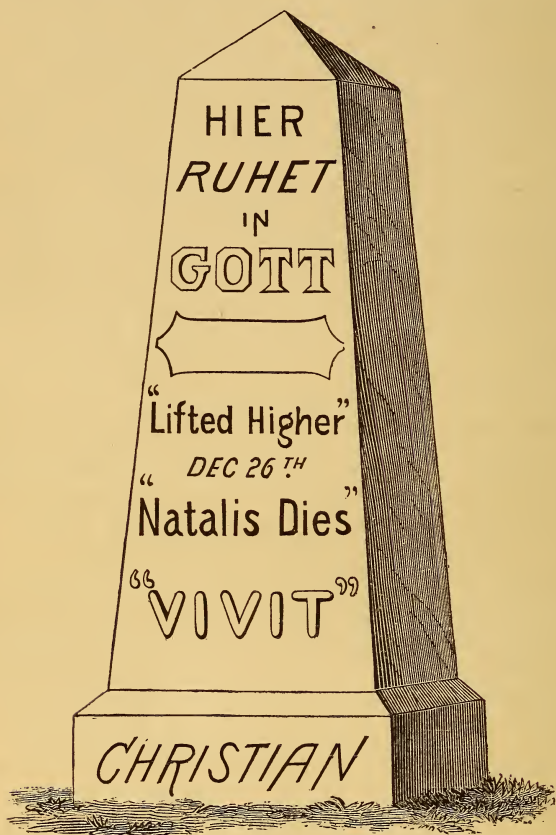 HIER
RUHET
IN
GOTT
"Lifted Higher"
DEC 26TH
"Natalis Dies"
"VIVIT"
CHRISTIAN